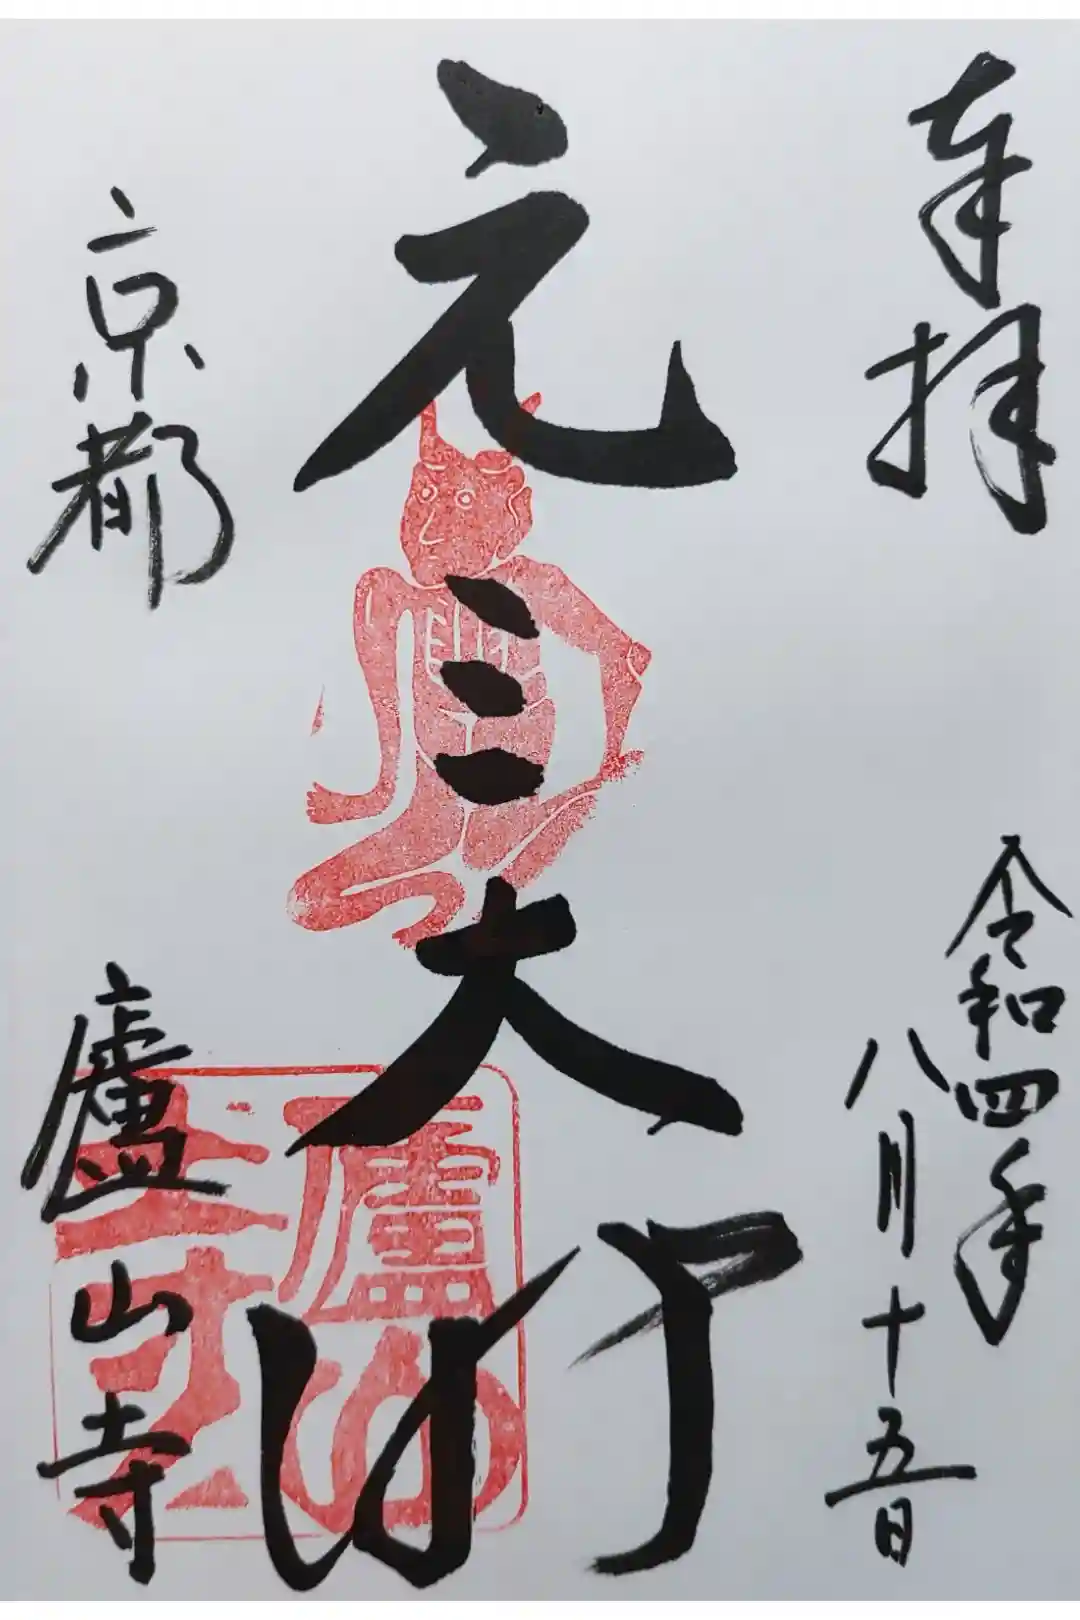 奉拝
令和四年
八月十五日
元三大師
京都
廬山寺
廬山寺